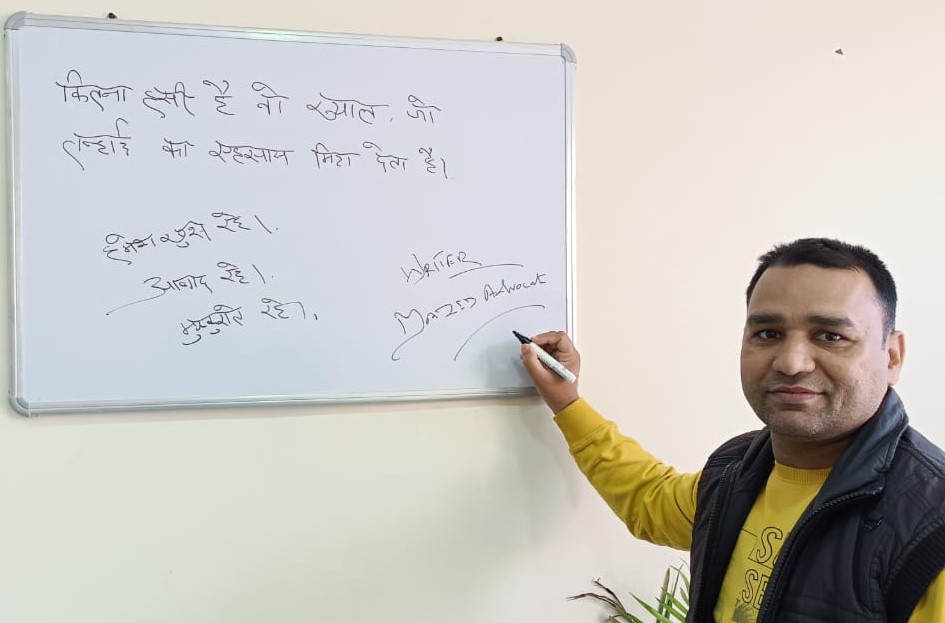 कितना हसी है वो ख्याल, जो
तन्हाई का एहसास मिटा देता है।
हमेशा खुश रहे।
आबाद रहे।
मुस्कुराते रहे।
WRITER
Advocate